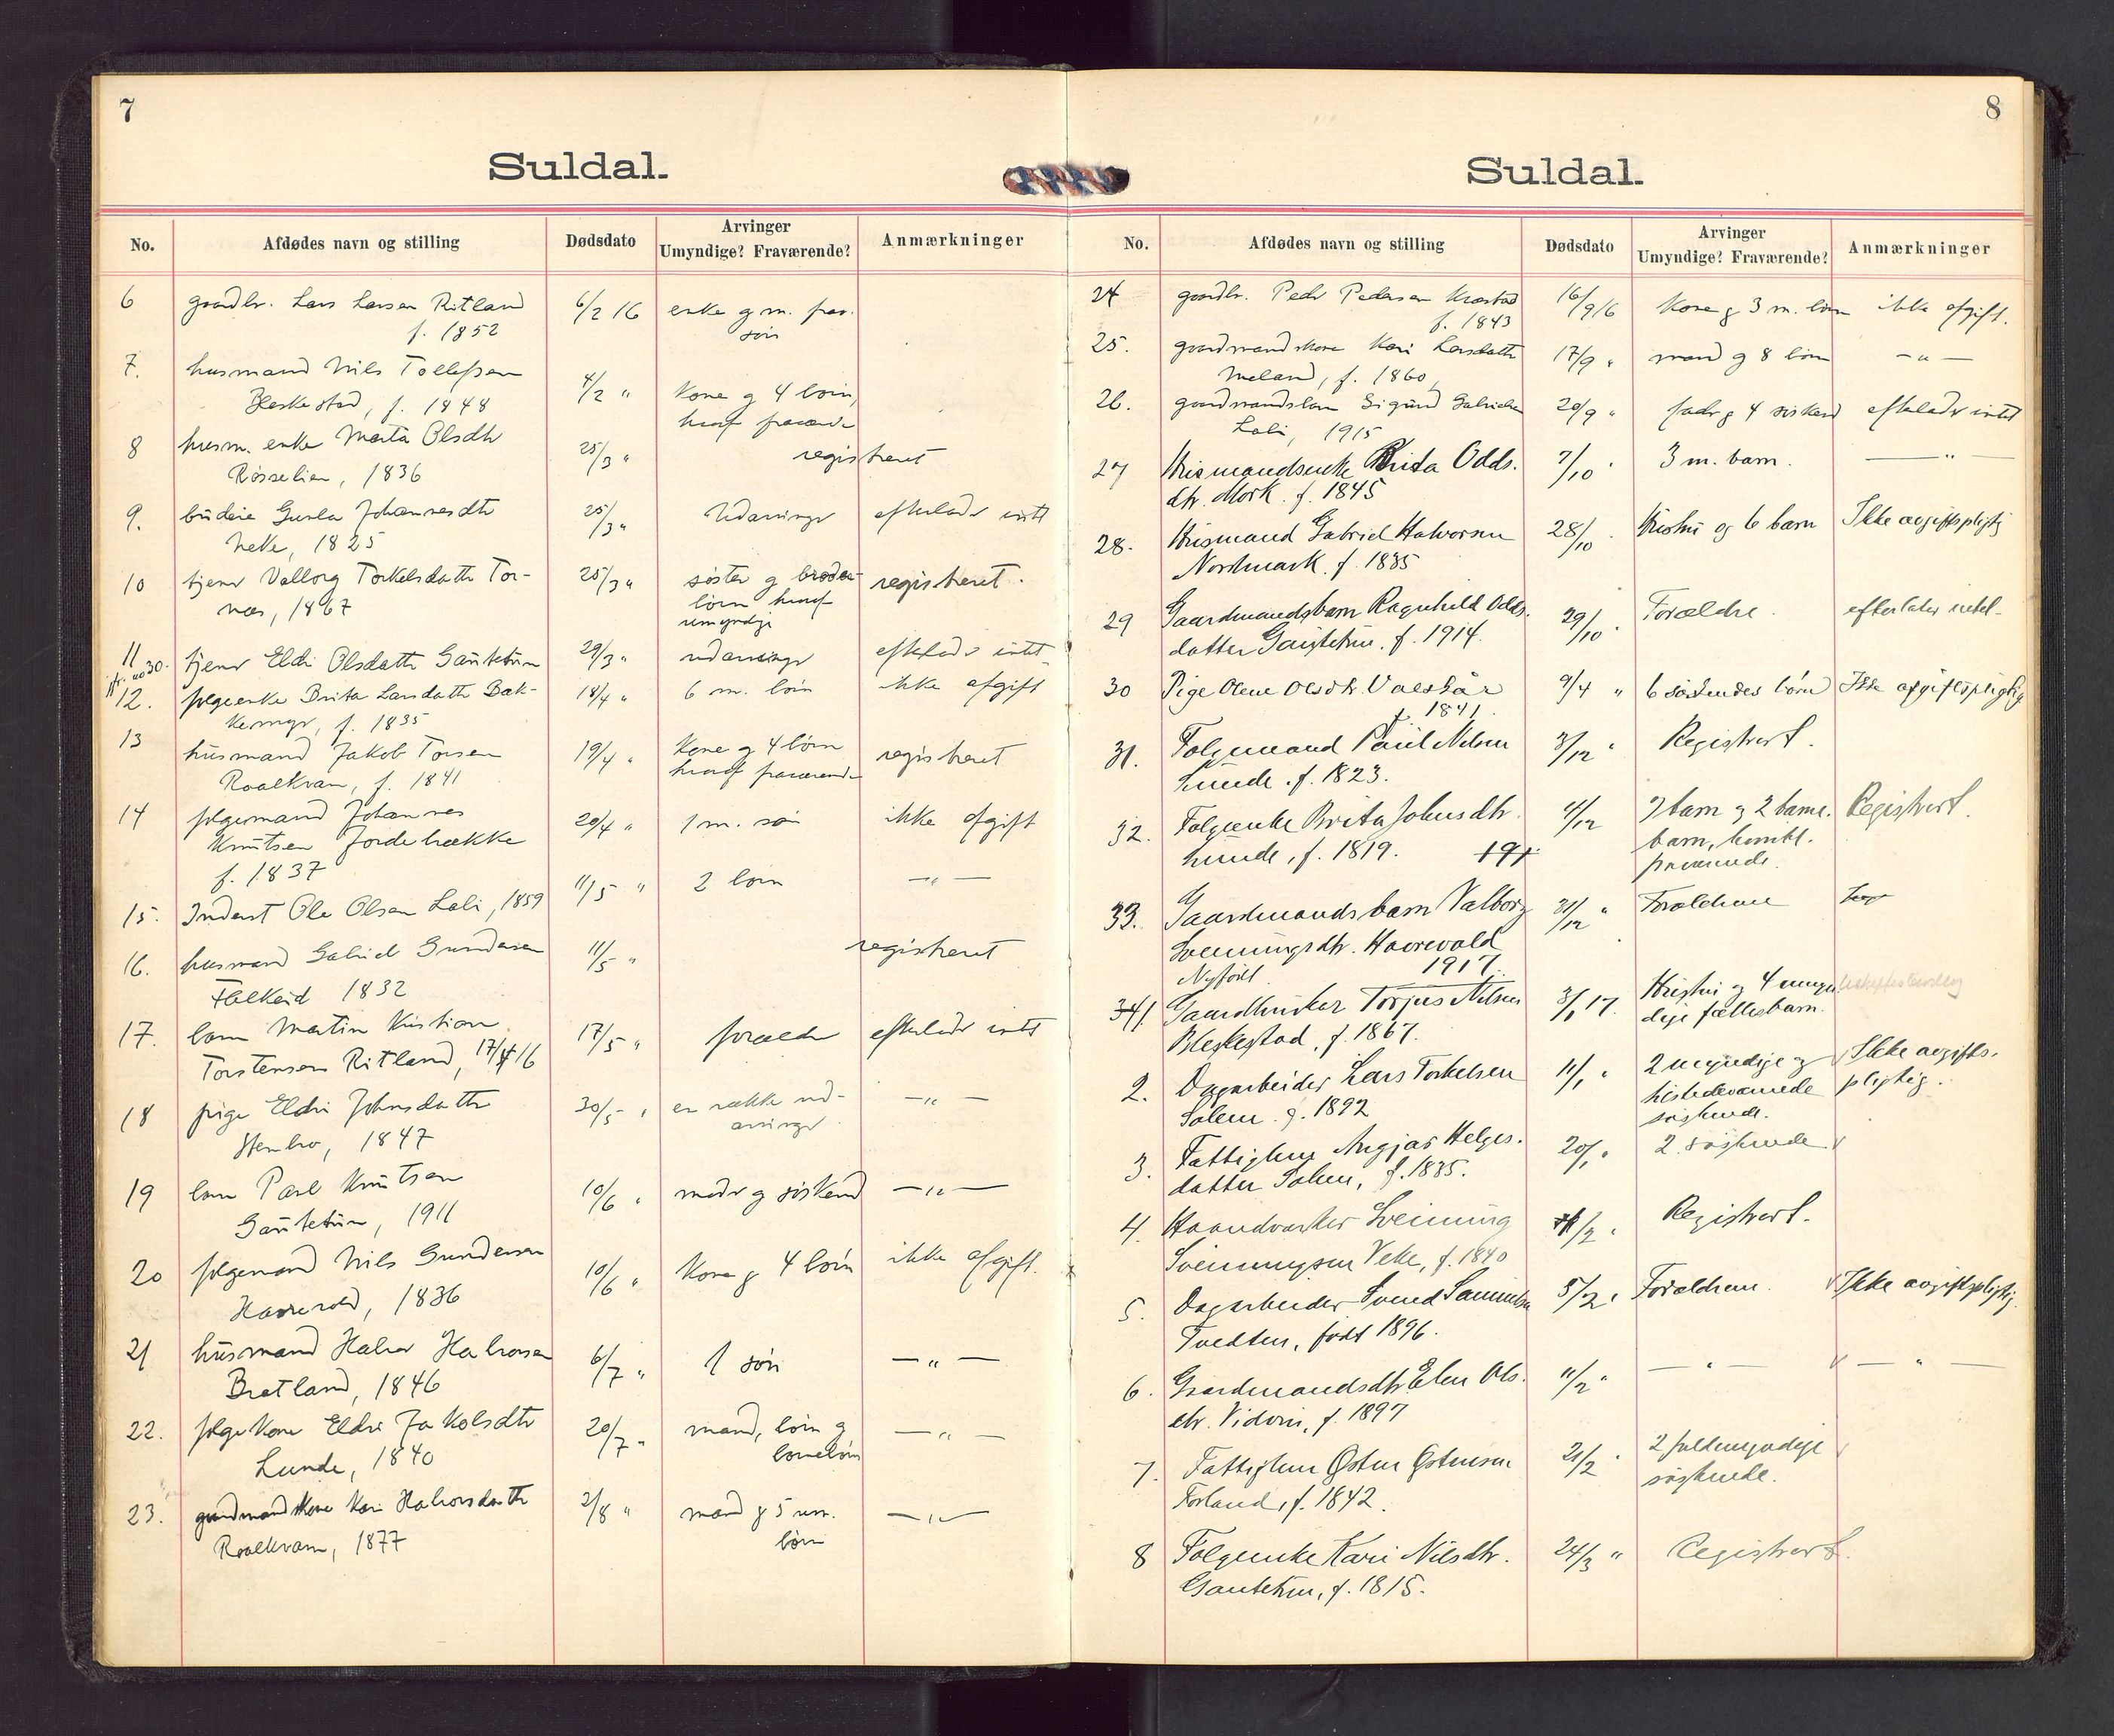 7
Suldal.
No.
Afdødes navn og stilling
Dødsdato
Arvinger
Umyndige? Fraværende?
Anmærkninger
6 gaardbr. Lars Larsen Ritland 6/2 16 enke g m. frav.
f. 1852 søn
7. husmand Nils Tollefsen
Bleskestad, f. 1848 4/2 " Kone g 4 børn,
hvoraf fraværende
8 husm. enke Marta Olsdtr 25/3 " registreret
Røsselien, 1836
9. budeie Gunla Johannesdtr 25/3 " Udarvinger efterlader intet
Veke, 1825
10 tjener Valborg Torkelsdatter Tor- 25/3 " søster g broder- registreret.
næs, 1867 børn hvoraf
umyndige
11 tjener Eldri Olsdatter Gautetun 29/3 " udarvinger efterlader intet
jfr. no 30.
12. følgeenke Brita Larsdatter Bæk- 18/4 " 6 m. børn ikke afgift
f. 1835
13 husmand Jakob Torsen 19/4 " Kone g 4 børn registreret
Roalkvam, f. 1841 hvoraf fraværende
14 følgemand Johannes 20/4 " 1 m. søn ikke afgift
Knutsen Fordebrække
f. 1837
15. Inderst Ole Olsen Lali, 1859 11/5 " 2 børn — " —
16. husmand Gabriel Gundersen 11/5 " registreret
1832
17. barn Martin Kristian 17/5 " forældre efterlader intet
Torstensen Ritland, 17/4 16
18 pige Eldri Johnsdatter 30/5 " en række ud- — " —
Stenbro, 1847 arvinger
19 barn Paul Knutsen 10/6 " moder g søskend — " —
Gautetun, 1911
20 følgemand Nils Gundersen 10/6 " Kone g 4 børn ikke afgift.
Havrevold, 1836
21 husmand Halvor Halvorsen 6/7 " 1 søn — " —
Bratland, 1846
22. følgekone Eldri Jakobsdtr 20/7 " mand, børn g — " —
Lunde, 1840 barnebørn
23. gaardmandskone Kari Halvorsdatter 2/8 " mand g 5 um. — " —
Roalkvam, 1877 børn
8
Suldal.
No.
Afdødes navn og stilling
Dødsdato
Arvinger
Umyndige? Fraværende?
Anmærkninger
24 gaardbr. Peder Pedersen 16/9 16 Kone g 3 m. børn ikke afgift.
f. 1843
25. gaardmandskone Kari Larsdatter 17/9 " mand g 8 børn — " —
Meland, f. 1860
26. gaardmandsbarn Sigurd Gabrielsen 20/9 " fader g 4 søskend efterlader intet
Lali, 1915
27 Husmandsenke Brita Odds. 7/10 " 3 m. barn. — " —
dtr. Mork. f. 1845
28. Husmand Gabriel Halvorsen 28/10 " Hustru og 6 barn Ikke avgiftspligtig
Nordmark. f. 1835
29 Gaardmandsbarn Ragnhild Odds. 29/10 " Forældre. efterlater intet.
datter Gautetun. f. 1914.
30 Pige Olene Olsdtr. Valskår 9/4 " 6 søskendes børn Ikke afgiftspligtig
f. 1841.
31. Følgemand Paul Nilsen 3/12 " Registrert.
Lunde. f. 1823.
32. Følgeenke Brita Johnsdtr. 4/12 7 barn g 2 barne- Registrert.
Lunde, f. 1819. 191 barn, hvorav
fraværende.
33. Gaardmandsbarn Valborg 31/12 " Forældrene
Sveinungsdtr. Havrevold
Nyfødt 1917.
34/1 Gaardbruker Torjus Nilsen 3/1 17. Hustru og 4 umyn-
Bleskestad, f. 1867. dige fællesbarn.
2. Dagarbeider Lars Torkelsen 11/1 " 2 umyndige og Ikke avgifts-
Solem. f. 1892 tilstedeværende pligtig.
søskende.
3. Fattiglem Angjær Helges. 20/1 " 2 søskende
datter Solem, f. 1835.
4. Haandverker Sveinung /2 " Registrert.
Sveinungsen Veke, f. 1840
5. Dagarbeider Svend Samuelsen 5/2 " Forældrene. Ikke avgiftspligtig.
Tvedten, født 1896.
6. Gaardmandsdtr Elen Ols. 11/2 " — " — — " —
dtr. Vidvei, f. 1897
7. Fattiglem Østen Østensen 21/2 " 2 fuldmyndige
Forland, f. 1842. søskende.
8 Følgeenke Kari Nilsdtr. 24/3 " Registrert.
Gautetun, f. 1815.